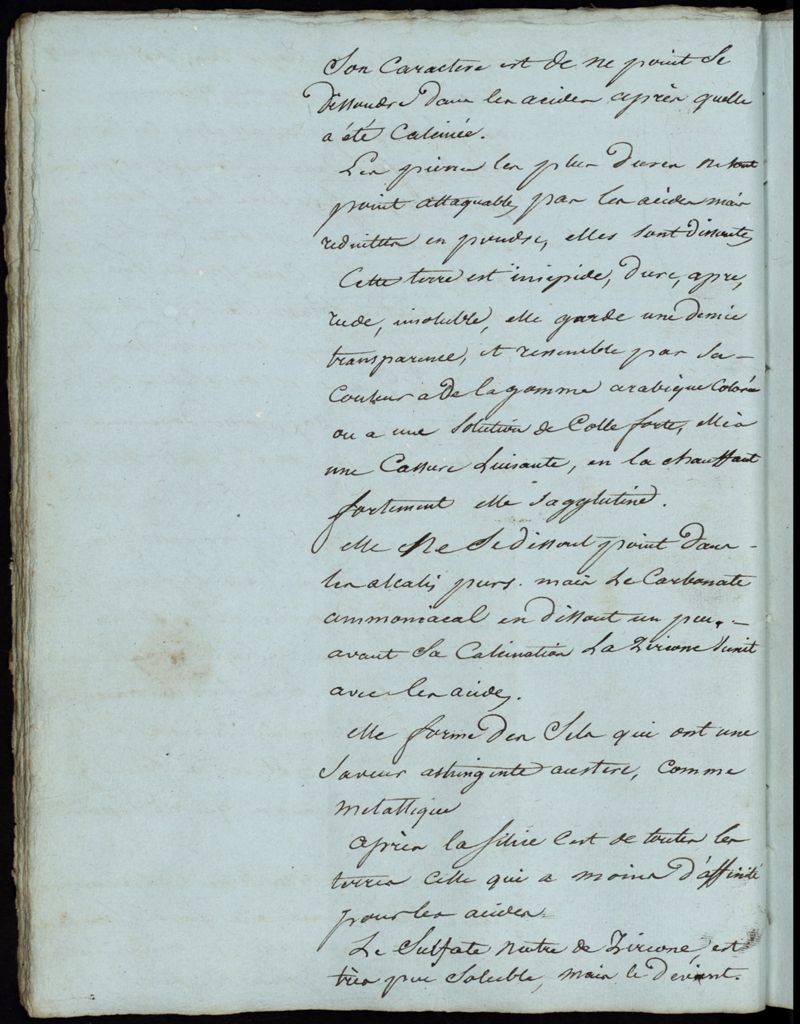 Son Caractere est de ne point se
dissoudre dans les acides après quelle
a été Calcinée.
Les pierres les plus dures ne sont
point attaquables par les acides mais
reduittes en poudre, elles sont dissoutes
Cette terre est insipide, dure, apre,
rude, insoluble, elle garde une demie
transparence, et ressemble par sa
Couleur a de la gomme arabique Colorée
ou a une Solution de Colle forte, elle a
une Cassure Luisante, en la chauffant
fortement elle s'agglutine.
elle Ne Se dissout point dans
les alcalis purs. mais Le Carbonate
ammoniacal en dissout un peu,
avant Sa Calcination La Zircone s'unit
avec les acides.
elle forme des Sels qui ont une
Saveur astringente austere, Comme
metallique
après la silice C'est de toutes les
terres Celle qui a moins d'affinité
pour les acides
Le Sulfate neutre de Zircone, est
très peu Soluble, mais le devient